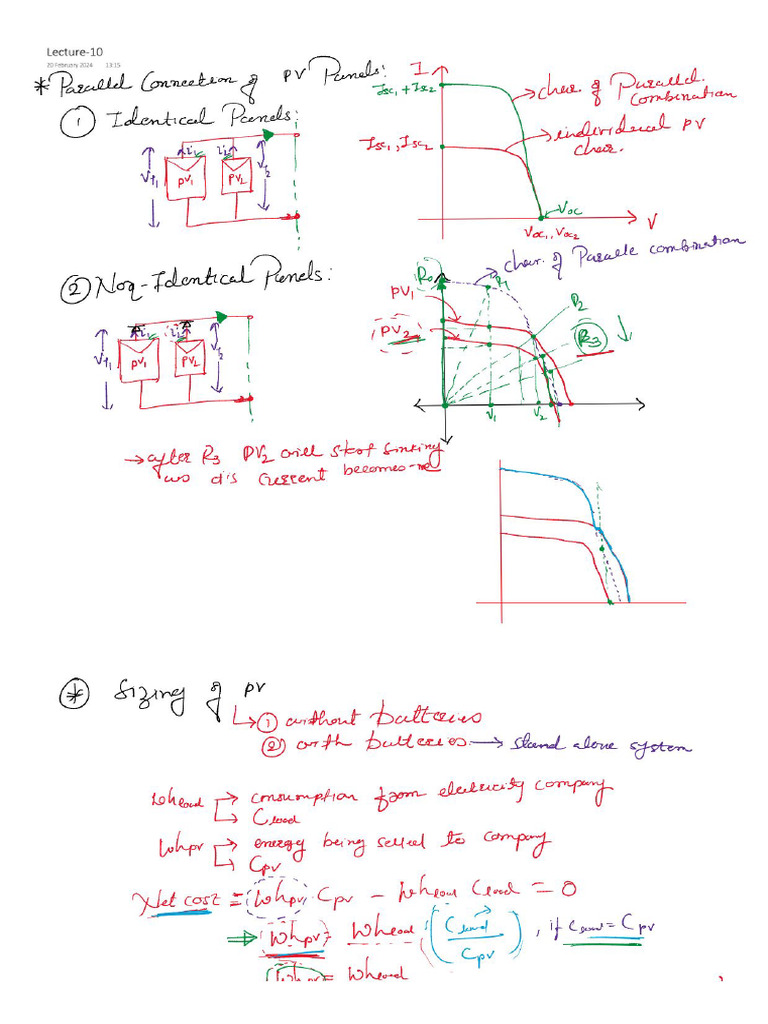 Lecture-10
20 February 2024 13:15
* Parallel Connection of PV Panels:
① Identical Panels:
i1 i2
V1 PV1 PV2 V2
I
Isc1 + Isc2
char. of Parallel Combination
Isc1, Isc2
individual PV char.
Voc
Voc1, Voc2
V
② Non-Identical Panels:
i1 i2
V1 PV1 PV2 V2
char. of Parallel combination
R0 R1
PV1
R2
PV2
R3
V1 V2
→ after R3 PV2 will start sinking
as its current becomes -ve
* Sizing of PV
① without batteries
② with batteries → stand alone system
Whload → consumption from electricity company
→ Cload
Whpv → energy being selled to company
→ Cpv
Net cost = Whpv Cpv - Whload Cload = 0
⇒ Whpv = Whload (Cload / Cpv), if Cload = Cpv
Whpv = Whload